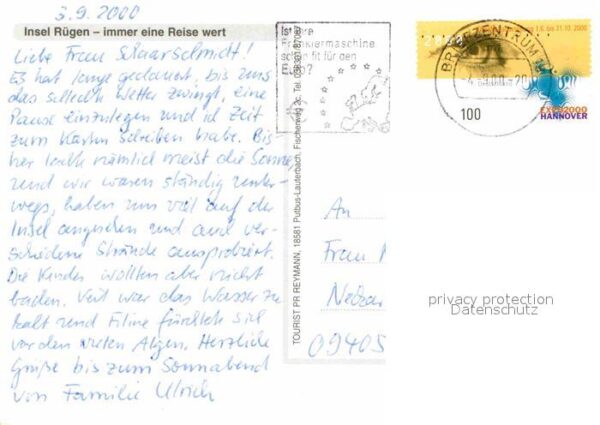 3.9.2000
Insel Rügen – immer eine Reise wert
Liebe Frau Schaarschmidt!
Es hat lange gedauert, bis uns
das schlechte Wetter zwingt, eine
Pause einzulegen und ich Zeit
zum Karten schreiben habe. Bis
her lachte nämlich meist die Sonne,
und wir waren ständig unter-
wegs, haben uns viel auf der
Insel angesehen und auch ver-
schiedene Strände ausprobiert.
Die Kinder wollten aber nicht
baden. Veit war das Wasser zu
kalt und Eline fürchtete sich
vor den vielen Algen. Herzliche
Grüße bis zum Sonnabend
von Familie Ulrich
TOURIST PR REYMANN, 18581 Putbus-Lauterbach, Fischerweg 2c, Tel.
Ist Ihre
Frankiermaschine
schon fit für den
Euro?
BRIEFZENTRUM
-4.9.00-20
100
1.6. bis 31.10. 2000
EXPO2000
HANNOVER
An
Frau
09405
privacy protection
Datenschutz